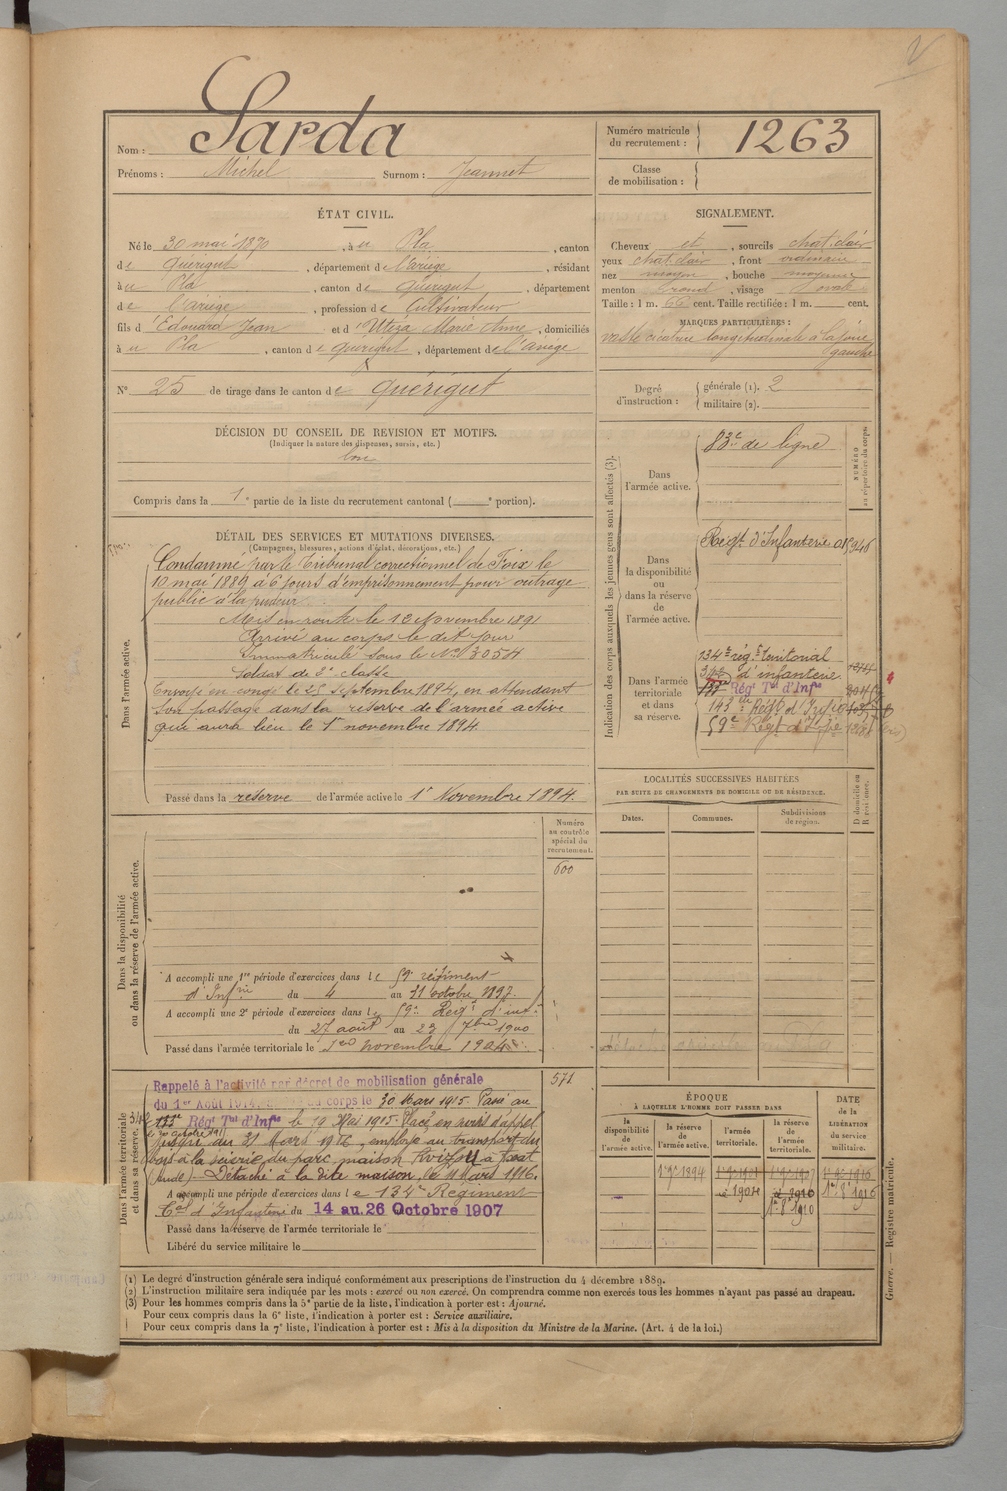 Nom : Sarda
Prénoms : Michel Surnom : Jeannet
Numéro matricule du recrutement : 1263
Classe de mobilisation :
ÉTAT CIVIL.
Né le 30 mai 1870, à u Pla, canton
de Quérigut, département de l'ariège, résidant
à u Pla, canton de Quérigut, département
de l'ariège, profession de Cultivateur
fils d'Edouard Jean et d'Utéza Marie Anne, domiciliés
à u Pla, canton de Quérigut, département de l'ariège
N° 25 de tirage dans le canton de Quérigut
SIGNALEMENT.
Cheveux et, sourcils chat. clair
yeux chat. clair, front ordinaire
nez moyen, bouche moyenne
menton rond, visage ovale
Taille : 1 m. 66 cent. Taille rectifiée : 1 m. cent.
MARQUES PARTICULIÈRES :
vaste cicatrice longitudinale à la joue
gauche
Degré d'instruction : générale (1). 2
militaire (2).
DÉCISION DU CONSEIL DE REVISION ET MOTIFS.
(Indiquer la nature des dispenses, sursis, etc.)
bon
Compris dans la 1e partie de la liste du recrutement cantonal ( e portion).
DÉTAIL DES SERVICES ET MUTATIONS DIVERSES.
(Campagnes, blessures, actions d'éclat, décorations, etc.)
Dans l'armée active.
Condamné par le Tribunal correctionnel de Foix le
10 mai 1889 à 6 jours d'emprisonnement pour outrage
public à la pudeur.
Mis en route le 12 Novembre 1891
Arrivé au corps le dit jour
Immatriculé sous le N° 3054
Soldat de 2e classe
Envoyé en congé le 25 septembre 1894, en attendant
son passage dans la réserve de l'armée active
qui aura lieu le 1er novembre 1894.
Passé dans la réserve de l'armée active le 1er Novembre 1894.
Indication des corps auxquels les jeunes gens sont affectés (3).
NUMÉRO au répertoire du corps.
Dans l'armée active.
83e de ligne
Dans la disponibilité ou dans la réserve de l'armée active.
Régt d'Infanterie
Dans l'armée territoriale et dans sa réserve.
134e régt territorial
d'infanterie
Régt Tal d'Infie
143e Régt d'Infie
59e Régt d'Infie
LOCALITÉS SUCCESSIVES HABITÉES
PAR SUITE DE CHANGEMENTS DE DOMICILE OU DE RÉSIDENCE.
Dates. Communes. Subdivisions de région. D domicile ou R résidence.
Numéro au contrôle spécial du recrutement.
600
Dans la disponibilité ou dans la réserve de l'armée active.
A accompli une 1re période d'exercices dans le 59e régiment
d'Infrie du 4 au 31 octobre 1897.
A accompli une 2e période d'exercices dans le 59e Régt d'inf.
du 27 août au 23 7bre 1900
Passé dans l'armée territoriale le 1er novembre 1904
571
Dans l'armée territoriale et dans sa réserve.
Rappelé à l'activité par décret de mobilisation générale
du 1er Août 1914. au corps le 30 Mars 1915. Passé au
Régt Tal d'Infie le 19 Mai 1915. Placé en sursis d'appel
jusqu'au 31 Mars 1916, employé au transport du
bois à la scierie du parc, maison à
(Aude). Détaché à la dite maison, le 11 Mars 1916.
A accompli une période d'exercices dans le 134e Régiment
Tal d'Infanterie du 14 au 26 Octobre 1907
Passé dans la réserve de l'armée territoriale le
Libéré du service militaire le
ÉPOQUE
À LAQUELLE L'HOMME DOIT PASSER DANS
la disponibilité de l'armée active. la réserve de l'armée active. l'armée territoriale. la réserve de l'armée territoriale.
DATE de la LIBÉRATION du service militaire.
1er 9bre 1894
1904 1910 1916
Guerre. — Registre matricule.
(1) Le degré d'instruction générale sera indiqué conformément aux prescriptions de l'instruction du 4 décembre 1889.
(2) L'instruction militaire sera indiquée par les mots : exercé ou non exercé. On comprendra comme non exercés tous les hommes n'ayant pas passé au drapeau.
(3) Pour les hommes compris dans la 5e partie de la liste, l'indication à porter est : Ajourné.
Pour ceux compris dans la 6e liste, l'indication à porter est : Service auxiliaire.
Pour ceux compris dans la 7e liste, l'indication à porter est : Mis à la disposition du Ministre de la Marine. (Art. 4 de la loi.)